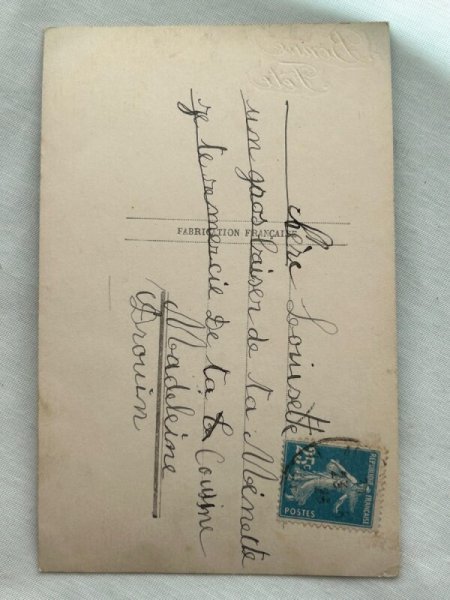 Bonne
Fête
FABRICATION FRANÇAISE
Chère Louisette
un gros baiser de ta Minette
je te remercie De ta
Cousine
Madeleine
Drouin
25c
REPUBLIQUE FRANÇAISE
POSTES